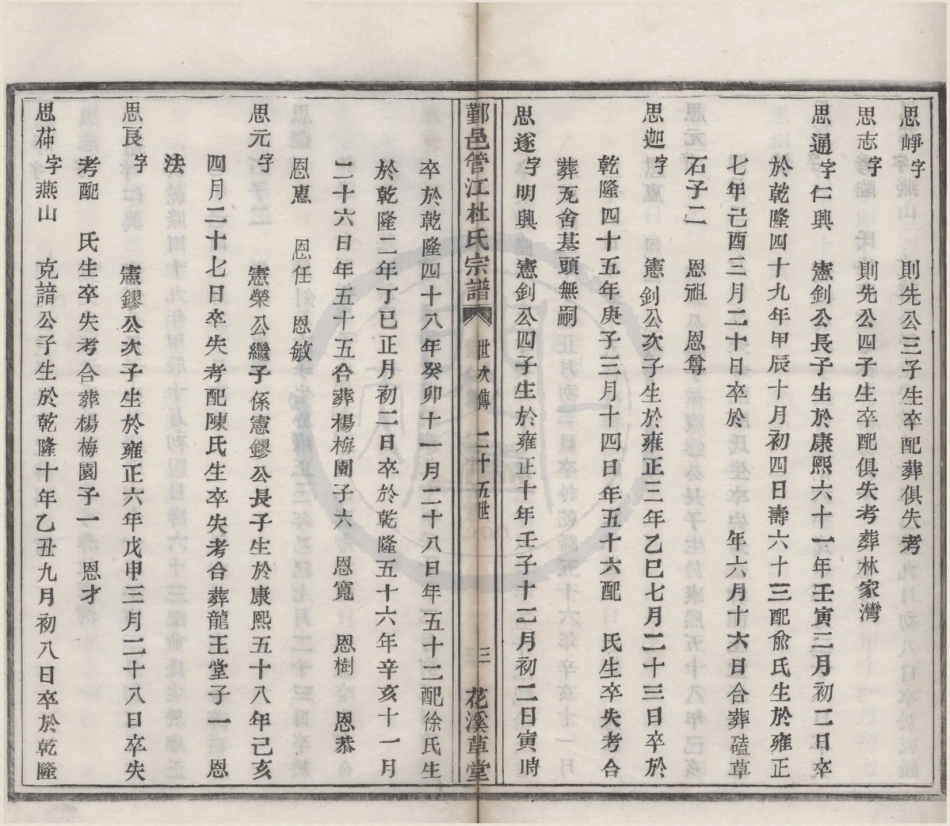 思崢字　則先公三子生卒配葬俱失考
思志字　則先公四子生卒配俱失考葬林家灣
思通字仁興　憲釗公長子生於康熙六十一年壬寅三月初二日卒
於乾隆四十九年甲辰十月初四日壽六十三配俞氏生於雍正
七年己酉三月二十日卒於　年六月十六日合葬磕草
石子二　恩祖　恩尊
思迦字　憲釗公次子生於雍正三年乙巳七月二十三日卒於
乾隆四十五年庚子三月十四日年五十六配　氏生卒失考合
葬尧舍基頭無嗣
思遂字明興　憲釗公四子生於雍正十年壬子十二月初二日寅時
鄞邑管江杜氏宗譜　世次傳　二十五世　三　花溪草堂
卒於乾隆四十八年癸卯十一月二十八日年五十二配徐氏生
於乾隆二年丁巳正月初二日卒於乾隆五十六年辛亥十一月
二十六日年五十五合葬楊梅園子六　恩寬　恩樹　恩恭
恩惠　恩任　恩敏
思元字　憲榮公繼子係憲鏐公長子生於康熙五十八年己亥
四月二十七日卒失考配陳氏生卒失考合葬龍王堂子一　恩
法
思良字　憲鏐公次子生於雍正六年戊申三月二十八日卒失
考配　氏生卒失考合葬楊梅園子一　恩才
思茽字燕山　克諳公子生於乾隆十年乙丑九月初八日卒於乾隆